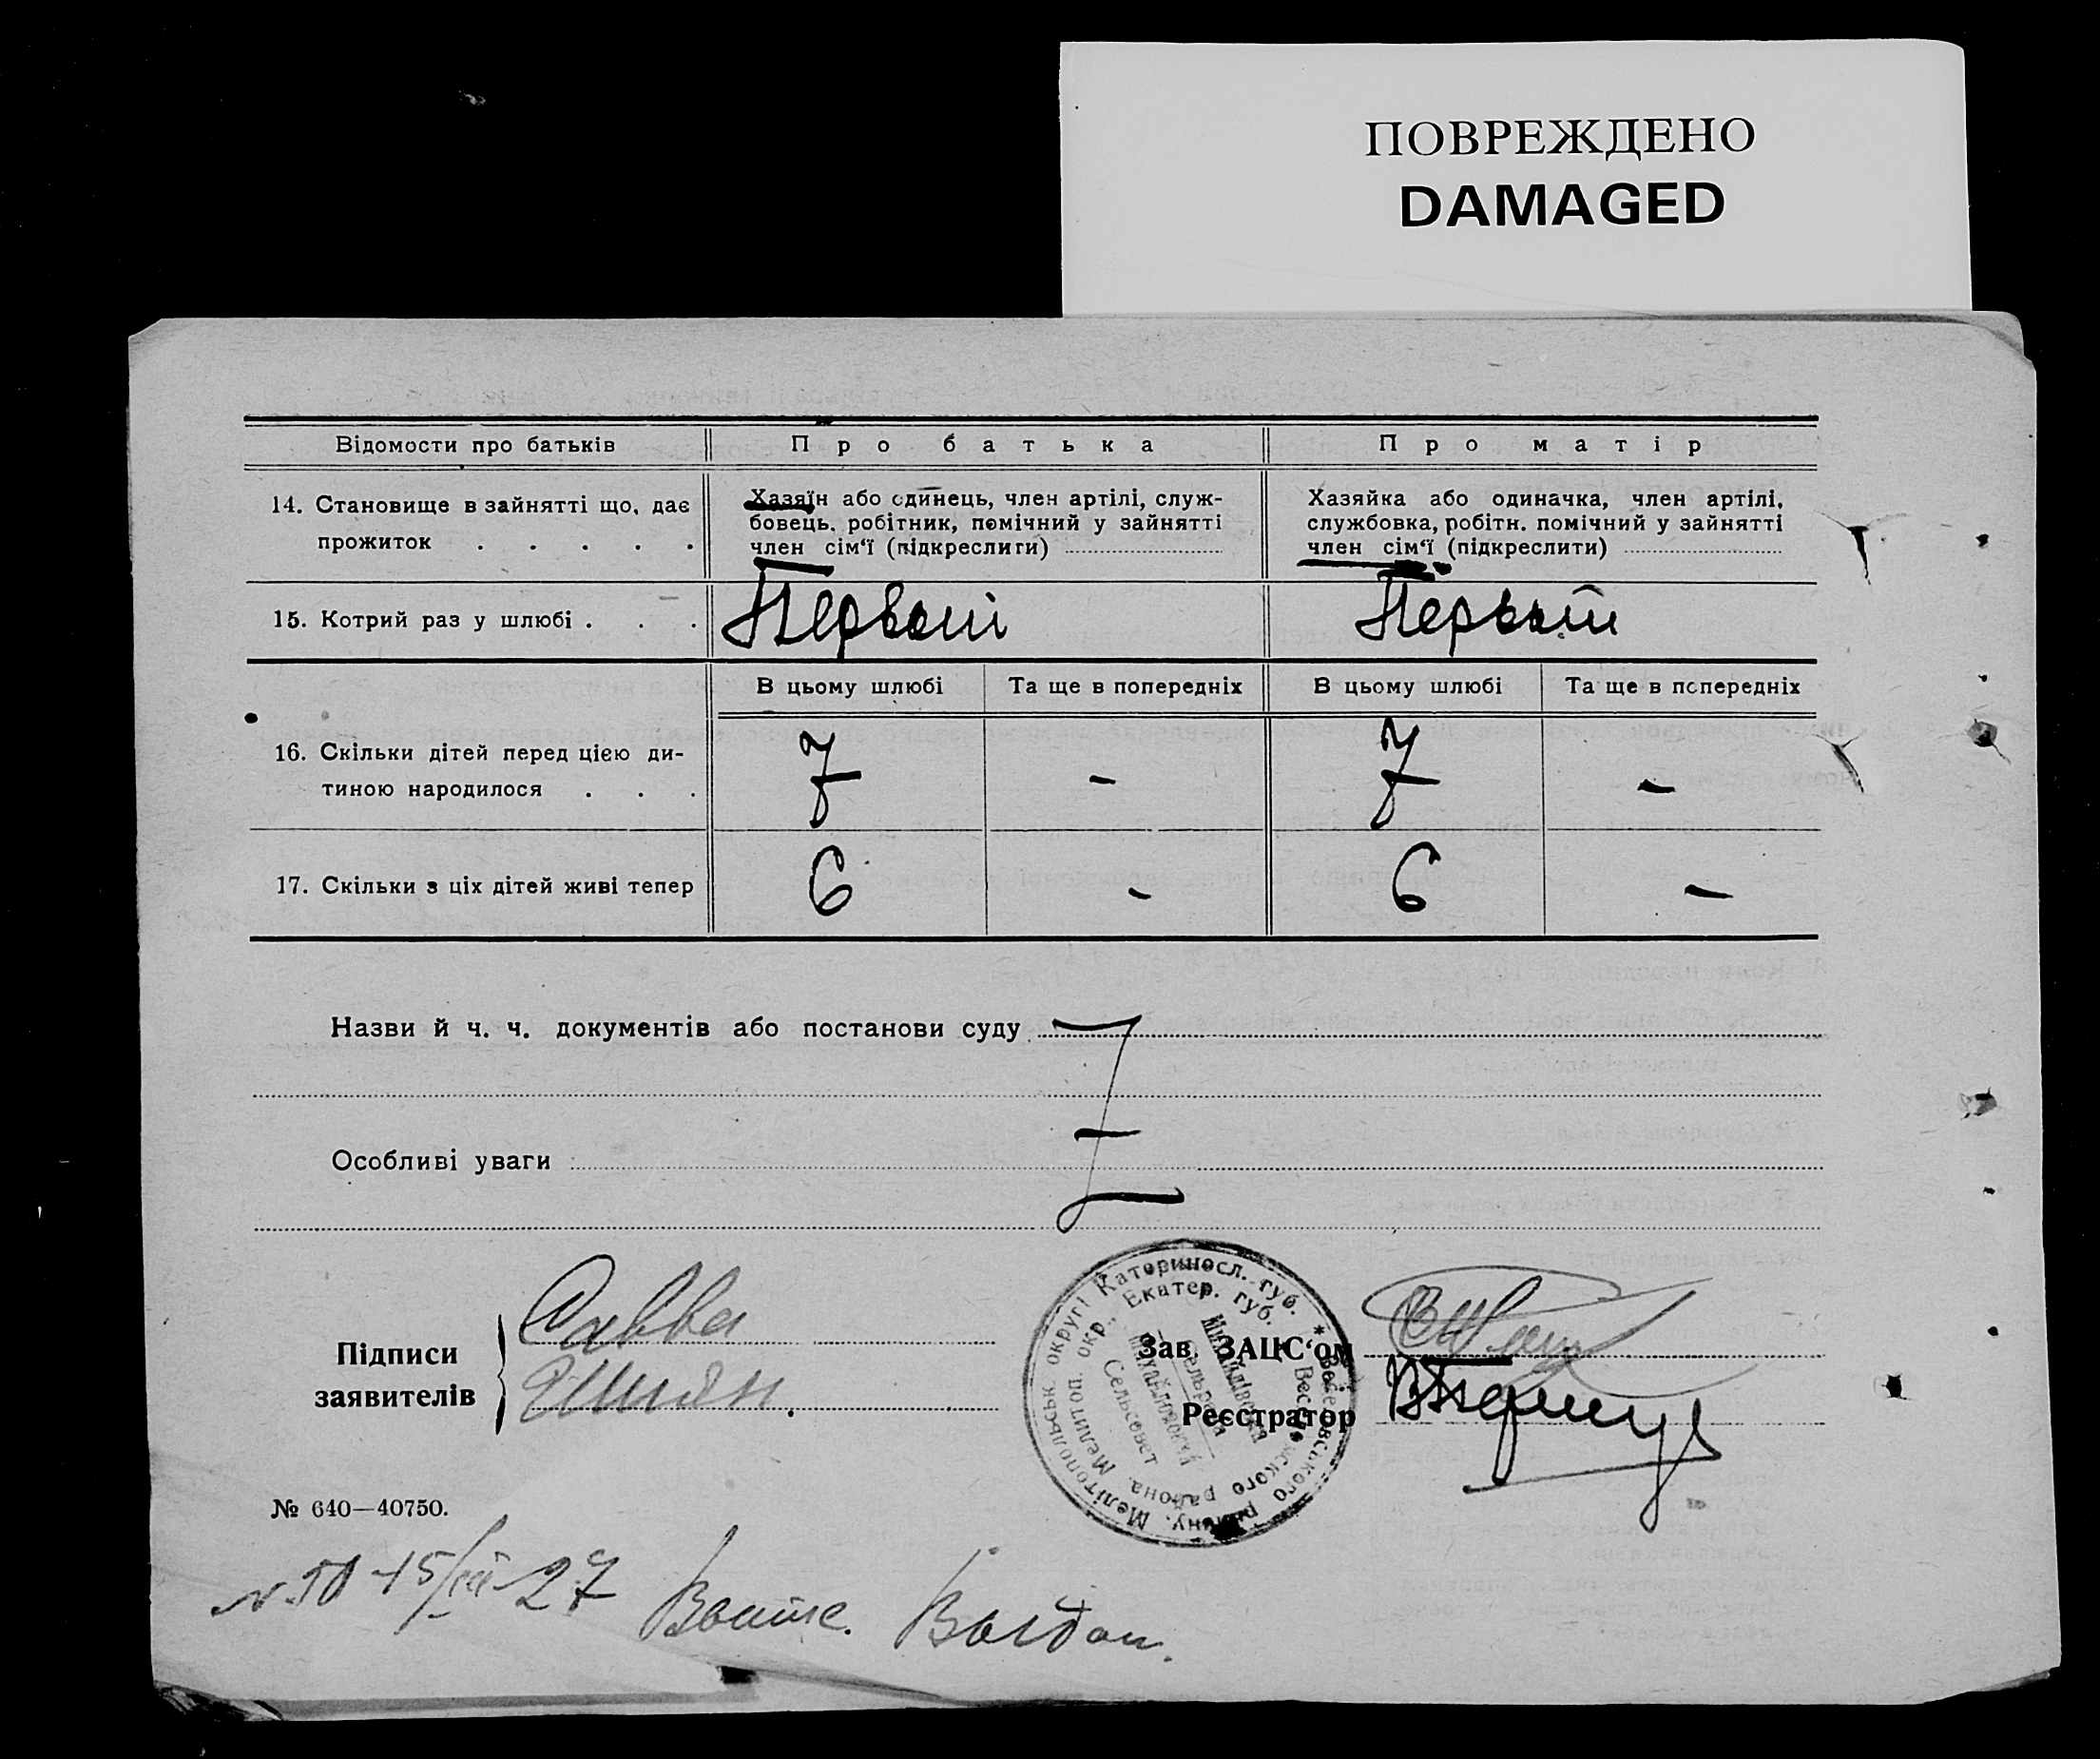 ПОВРЕЖДЕНО
DAMAGED
Відомости про батьків Про батька Про матір
14. Становище в зайнятті що, дає прожиток . . . . .
Хазяїн або одинець, член артілі, служ-
бовець, робітник, помічний у зайнятті
член сім‘ї (підкреслити)
Хазяйка або одиначка, член артілі,
службовка, робітн. помічний у зайнятті
член сім‘ї (підкреслити)
15. Котрий раз у шлюбі . . . Первый Первый
В цьому шлюбі Та ще в попередніх В цьому шлюбі Та ще в попередніх
16. Скільки дітей перед цією ди-
тиною народилося . . . 7 - 7 -
17. Скільки з ціх дітей живі тепер 6 - 6 -
Назви й ч. ч. документів або постанови суду
Особливі уваги
Підписи
заявителів
Савва
Шиян.
Катериносл. губ. * Веселовського району. Мелітопольськ. округі
Екатер. губ. Веселовского района. Мелитоп. окр.
Михайлівська
сельрада
Михайловский
Сельсовет
Зав. ЗАЦС‘ом
Реєстратор
№ 640—40750.
N 50 15/III-27